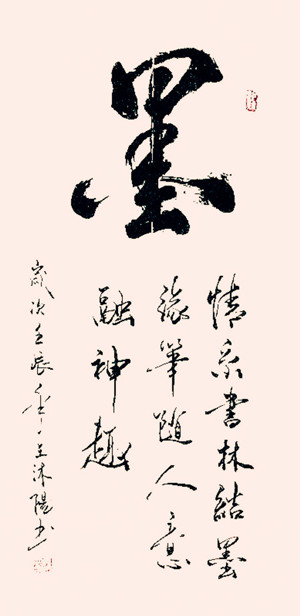 墨
情系書林結墨
緣筆隨人意
融神趣
歲次壬辰 王沐陽書